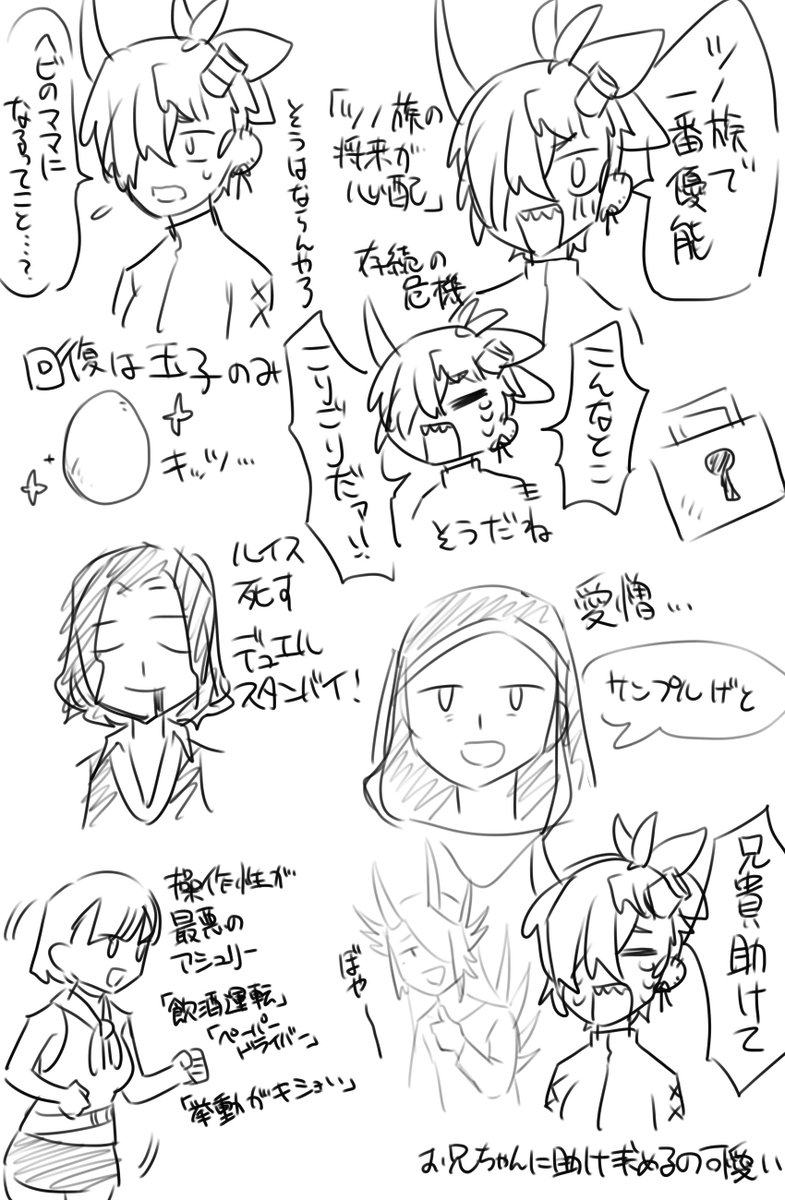 ツノ族で
一番優能
「ツノ族の
将来が
心配」
存続の
危機
そうはならんやろ
ヘビのママに
なるってこと…?
こんなとこ
こりごりだァ!!
そうだね
回復は玉子のみ
キッツ…
ルイス
死す
デュエル
スタンバイ!
愛憎…
サンプルげと
操作性が
最悪の
アシュリー
「飲酒運転」
「ペーパー
ドライバー」
「挙動がキショい」
兄貴助けて
ぽやー
お兄ちゃんに助け求めるの可愛い